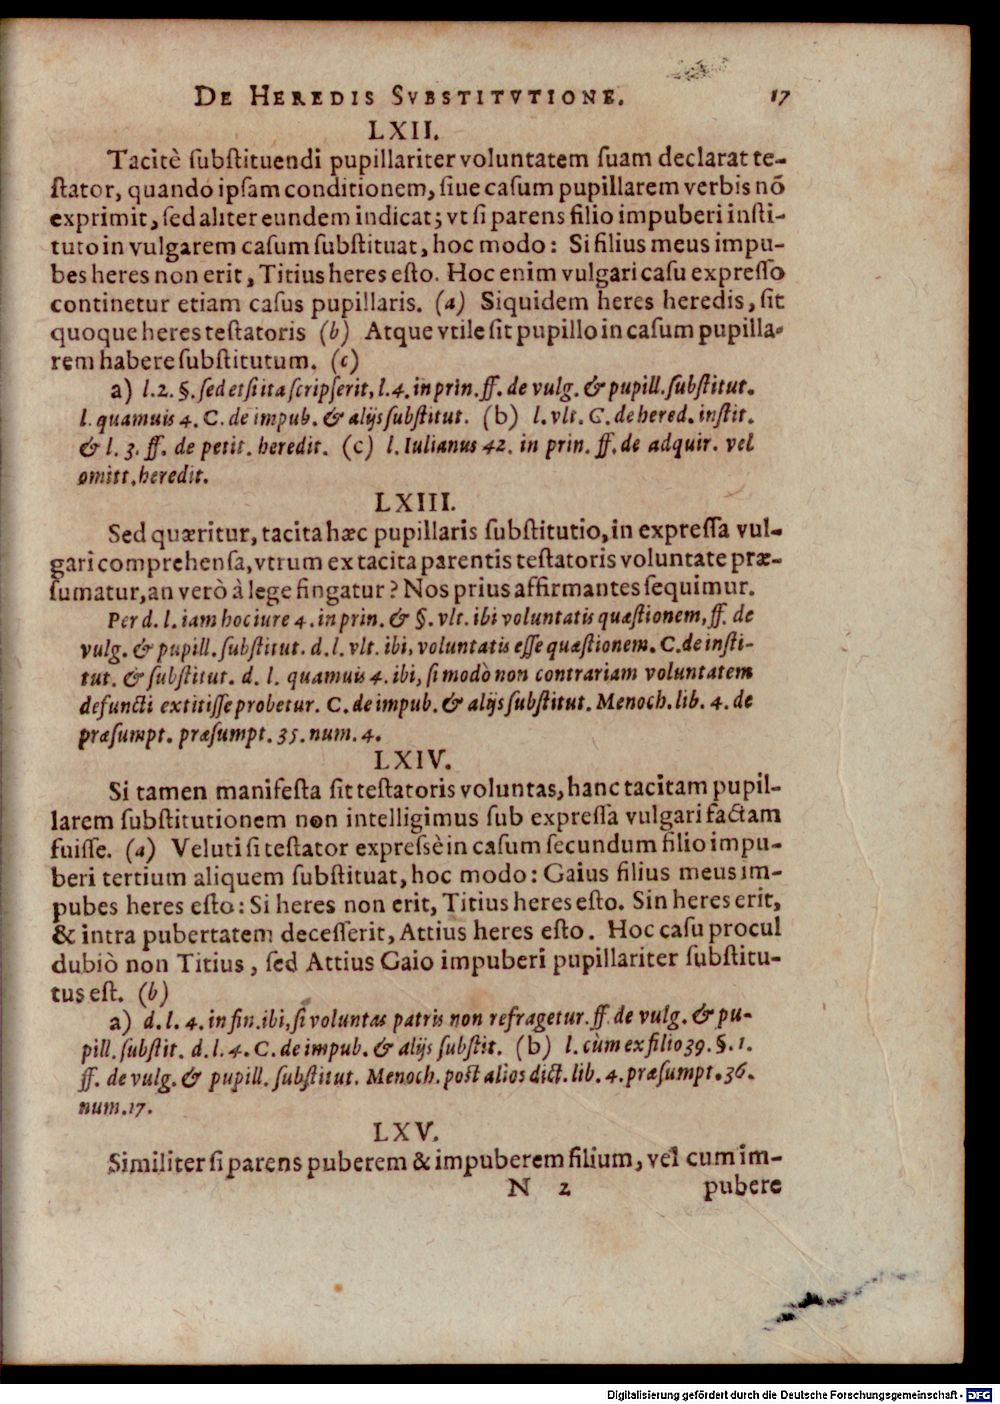 DE HEREDIS SVBSTITVTIONE. 17
LXII.
Tacitè ſubſtituendi pupillariter voluntatem ſuam declarat te-
ſtator, quando ipſam conditionem, ſiue caſum pupillarem verbis nō
exprimit, ſed aliter eundem indicat; vt ſi parens filio impuberi inſti-
tuto in vulgarem caſum ſubſtituat, hoc modo: Si filius meus impu-
bes heres non erit, Titius heres eſto. Hoc enim vulgari caſu expreſſo
continetur etiam caſus pupillaris. (a) Siquidem heres heredis, ſit
quoque heres teſtatoris (b) Atque vtile ſit pupillo in caſum pupilla-
rem habere ſubſtitutum. (c)
a) l. 2. §. ſed etſi ita ſcripſerit, l. 4. in prin. ff. de vulg. & pupill. ſubſtitut.
l. quamuis 4. C. de impub. & alijs ſubſtitut. (b) l. vlt. C. de hered. inſtit.
& l. 3. ff. de petit. heredit. (c) l. Iulianus 42. in prin. ff. de adquir. vel
omitt. heredit.
LXIII.
Sed quæritur, tacita hæc pupillaris ſubſtitutio, in expreſſa vul-
gari comprehenſa, vtrum ex tacita parentis teſtatoris voluntate præ-
ſumatur, an verò à lege fingatur? Nos prius affirmantes ſequimur.
Per d. l. iam hoc iure 4. in prin. & §. vlt. ibi voluntatis quæſtionem, ff. de
vulg. & pupill. ſubſtitut. d. l. vlt. ibi, voluntatis eſſe quæſtionem. C. de inſti-
tut. & ſubſtitut. d. l. quamuis 4. ibi, ſi modò non contrariam voluntatem
defuncti extitiſſe probetur. C. de impub. & alijs ſubſtitut. Menoch. lib. 4. de
præſumpt. præſumpt. 35. num. 4.
LXIV.
Si tamen manifeſta ſit teſtatoris voluntas, hanc tacitam pupil-
larem ſubſtitutionem non intelligimus ſub expreſſa vulgari factam
fuiſſe. (a) Veluti ſi teſtator expreſsè in caſum ſecundum filio impu-
beri tertium aliquem ſubſtituat, hoc modo: Gaius filius meus im-
pubes heres eſto: Si heres non erit, Titius heres eſto. Sin heres erit,
& intra pubertatem deceſſerit, Attius heres eſto. Hoc caſu procul
dubiò non Titius, ſed Attius Gaio impuberi pupillariter ſubſtitu-
tus eſt. (b)
a) d. l. 4. in fin. ibi, ſi voluntas patris non refragetur. ff. de vulg. & pu-
pill. ſubſtit. d. l. 4. C. de impub. & alijs ſubſtit. (b) l. cùm ex filio 39. §. 1.
ff. de vulg. & pupill. ſubſtitut. Menoch. poſt alios dict. lib. 4. præſumpt. 36.
num. 17.
LXV.
Similiter ſi parens puberem & impuberem filium, vel cum im-
N 2 pubere
Digitalisierung gefördert durch die Deutsche Forschungsgemeinschaft - DFG